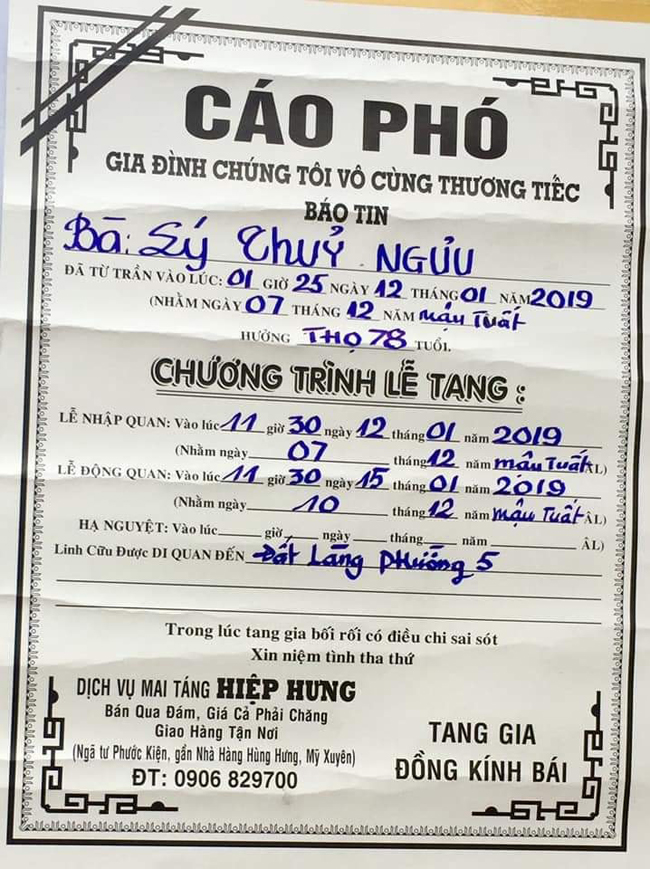 CÁO PHÓ
GIA ĐÌNH CHÚNG TÔI VÔ CÙNG THƯƠNG TIẾC
BÁO TIN
Bà: Lý Thuỷ NGƯU
ĐÃ TỪ TRẦN VÀO LÚC: 01 GIỜ 25 NGÀY 12 THÁNG 01 NĂM 2019
(NHẰM NGÀY 07 THÁNG 12 NĂM Mậu Tuất
HƯỞNG THỌ 78 TUỔI.
CHƯƠNG TRÌNH LỄ TANG :
LỄ NHẬP QUAN: Vào lúc 11 giờ 30 ngày 12 tháng 01 năm 2019
(Nhằm ngày 07 tháng 12 năm Mậu Tuất ÂL)
LỄ ĐỘNG QUAN: Vào lúc 11 giờ 30 ngày 15 tháng 01 năm 2019
(Nhằm ngày 10 tháng 12 năm Mậu Tuất ÂL)
HẠ NGUYỆT: Vào lúc giờ ngày tháng năm ÂL)
Linh Cữu Được DI QUAN ĐẾN Đất Làng Phường 5
Trong lúc tang gia bối rối có điều chi sai sót
Xin niệm tình tha thứ
DỊCH VỤ MAI TÁNG HIỆP HƯNG
Bán Qua Đám, Giá Cả Phải Chăng
Giao Hàng Tận Nơi
(Ngã tư Phước Kiện, gần Nhà Hàng Hùng Hưng, Mỹ Xuyên)
ĐT: 0906 829700
TANG GIA
ĐỒNG KÍNH BÁI